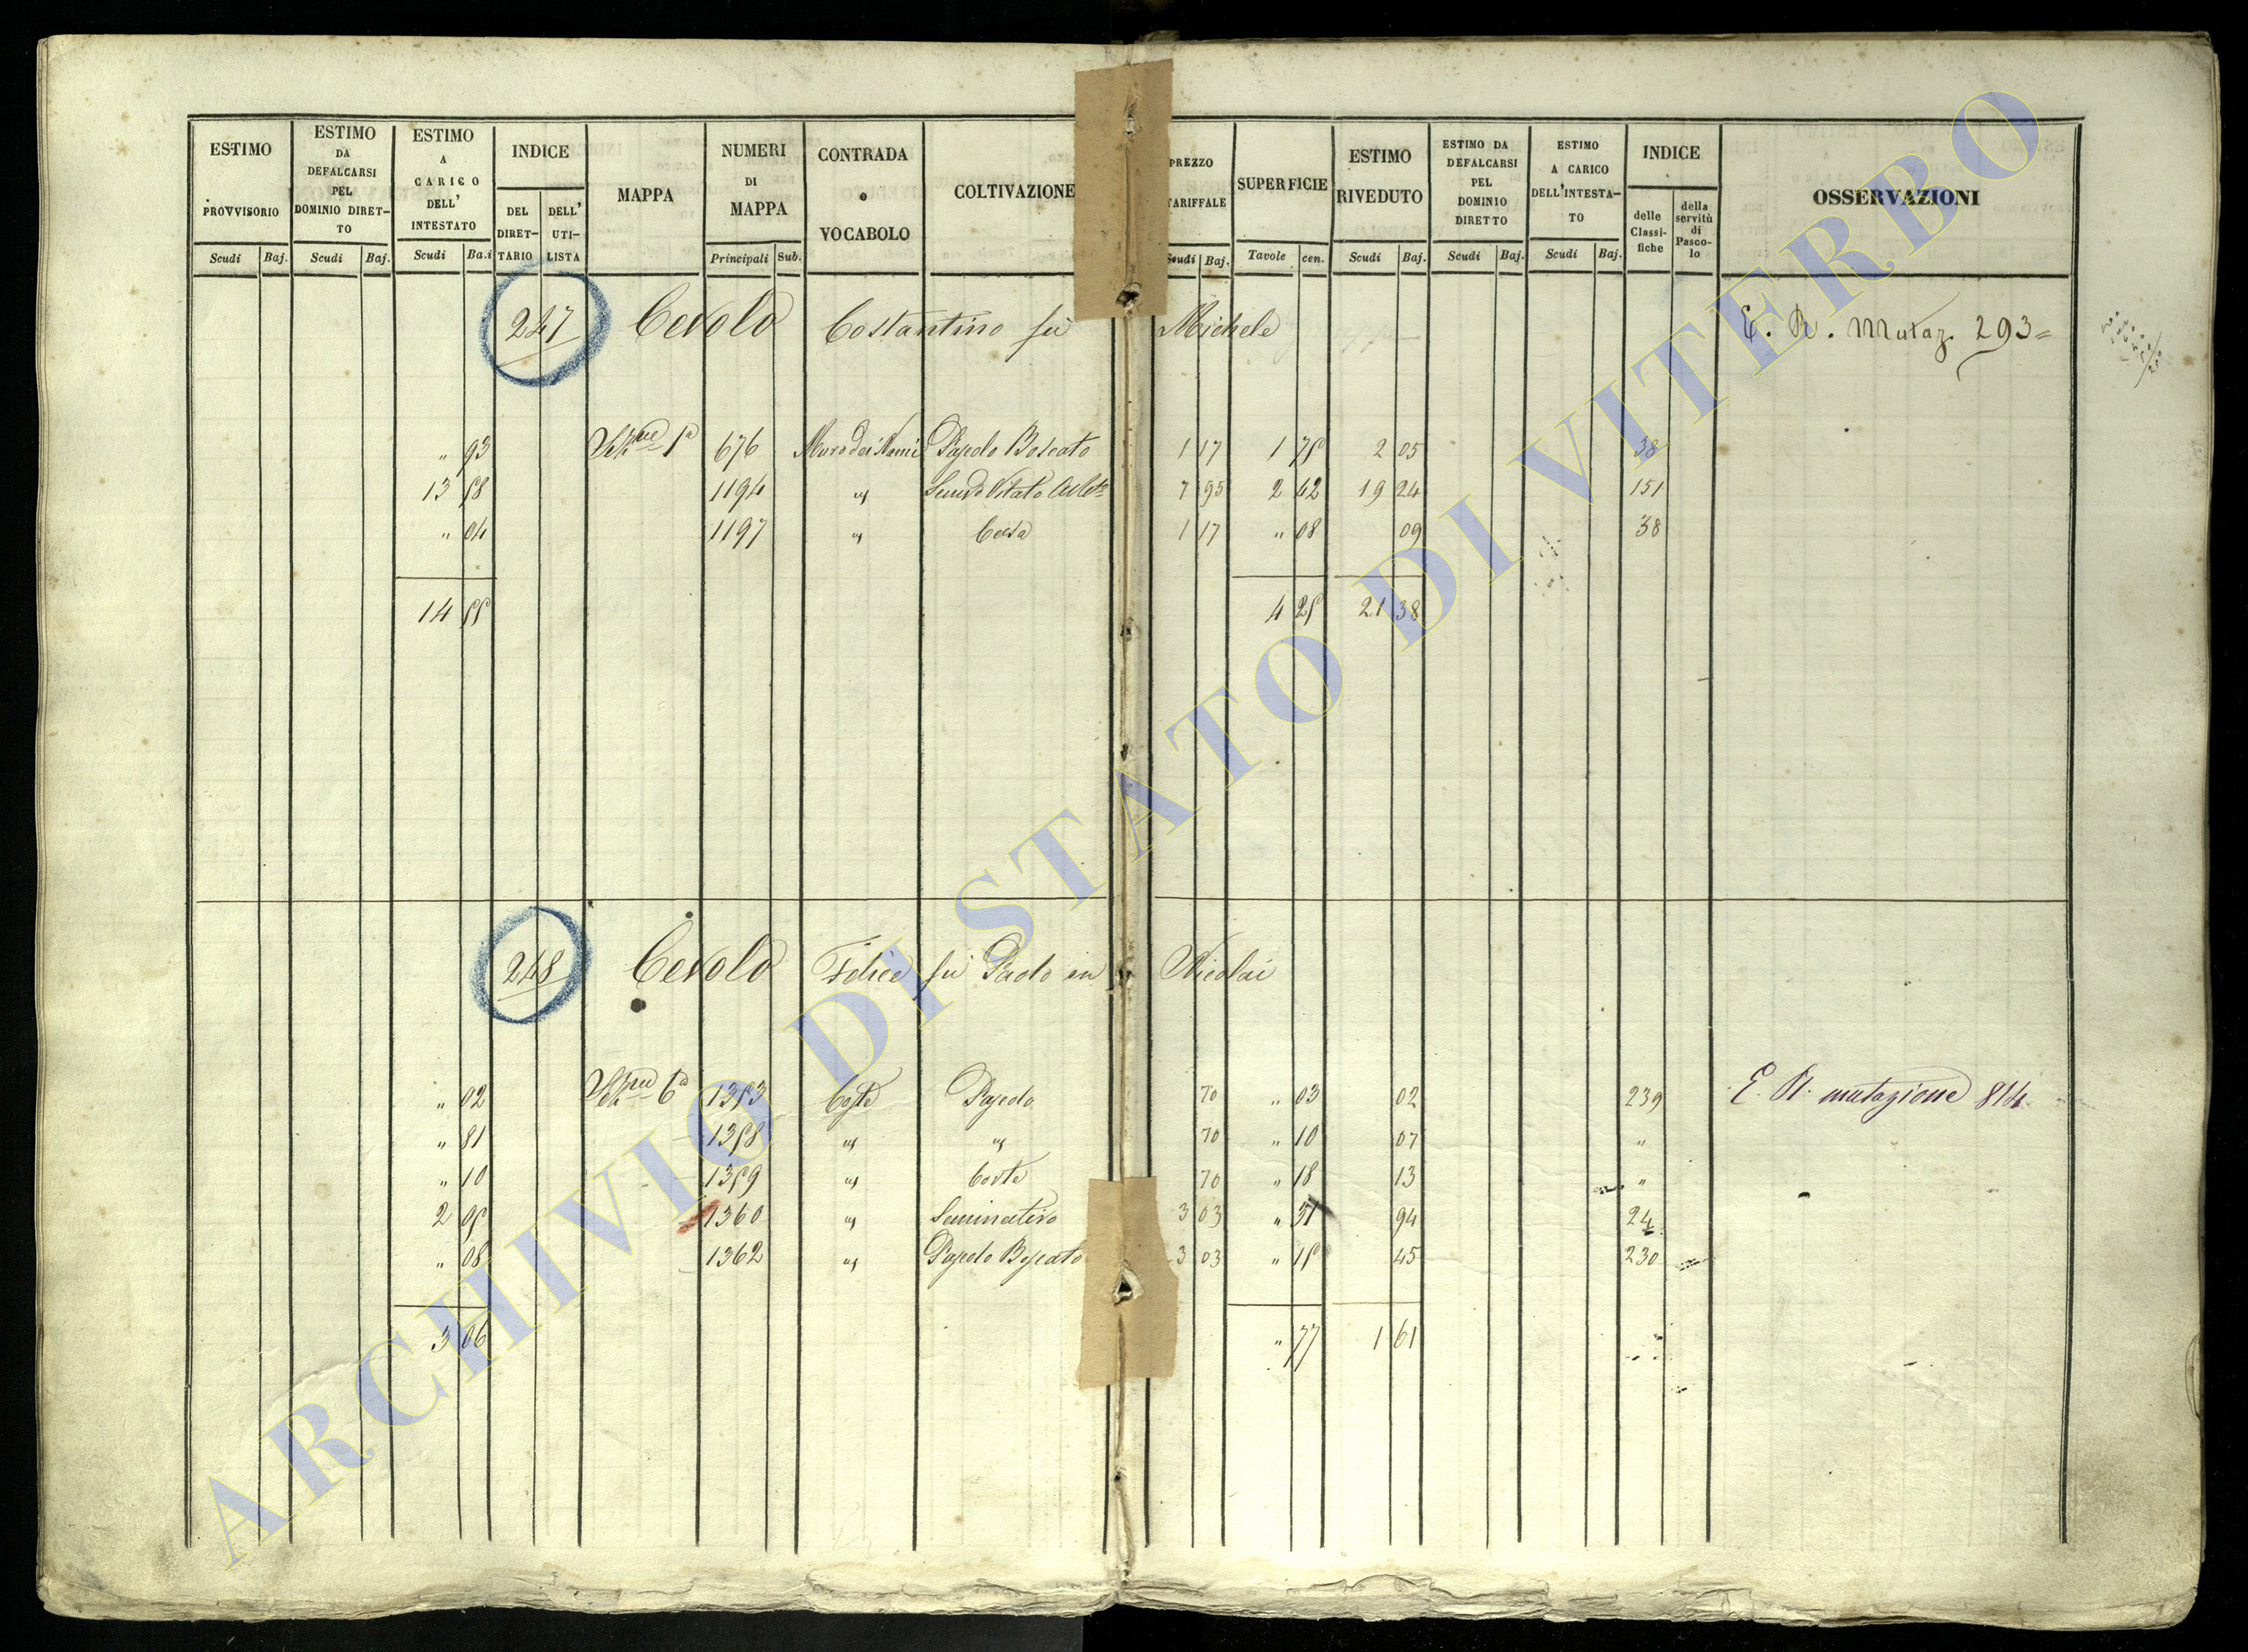 ESTIMO PROVVISORIO
Scudi Baj.
ESTIMO DA DEFALCARSI PEL DOMINIO DIRET-TO
Scudi Baj.
ESTIMO A CARICO DELL' INTESTATO
Scudi Ba.i
INDICE
DEL DIRET-TARIO
DELL' UTI-LISTA
MAPPA
NUMERI DI MAPPA
Principali Sub.
CONTRADA o VOCABOLO
COLTIVAZIONE
PREZZO TARIFFALE
Scudi Baj.
SUPERFICIE
Tavole cen.
ESTIMO RIVEDUTO
Scudi Baj.
ESTIMO DA DEFALCARSI PEL DOMINIO DIRETTO
Scudi Baj.
ESTIMO A CARICO DELL'INTESTA-TO
Scudi Baj.
INDICE
delle Classi-fiche
della servitù di Pasco-lo
OSSERVAZIONI
247 Cevolo Costantino fù Michele E. R. Mutaz. 293=
„ 93 1ª 676 Pascolo Boscato 1 17 1 75 2 05 38
13 58 1194 " 7 95 2 42 19 24 151
„ 04 1197 " 1 17 „ 08 09 38
14 55 4 25 21 38
248 Cevolo Felice fù Paolo in Nicolai
„ 02 6ª 1353 Coste Pascolo 70 „ 03 02 239 E. R. mutazione 814
„ 81 1358 " " 70 „ 10 07 "
„ 10 1359 " 70 „ 18 13 "
2 05 1360 " Seminativo 3 03 „ 31 94 24
„ 08 1362 " Pascolo Boscato 3 03 „ 15 45 230
3 06 „ 77 1 61
ARCHIVIO DI STATO DI VITERBO